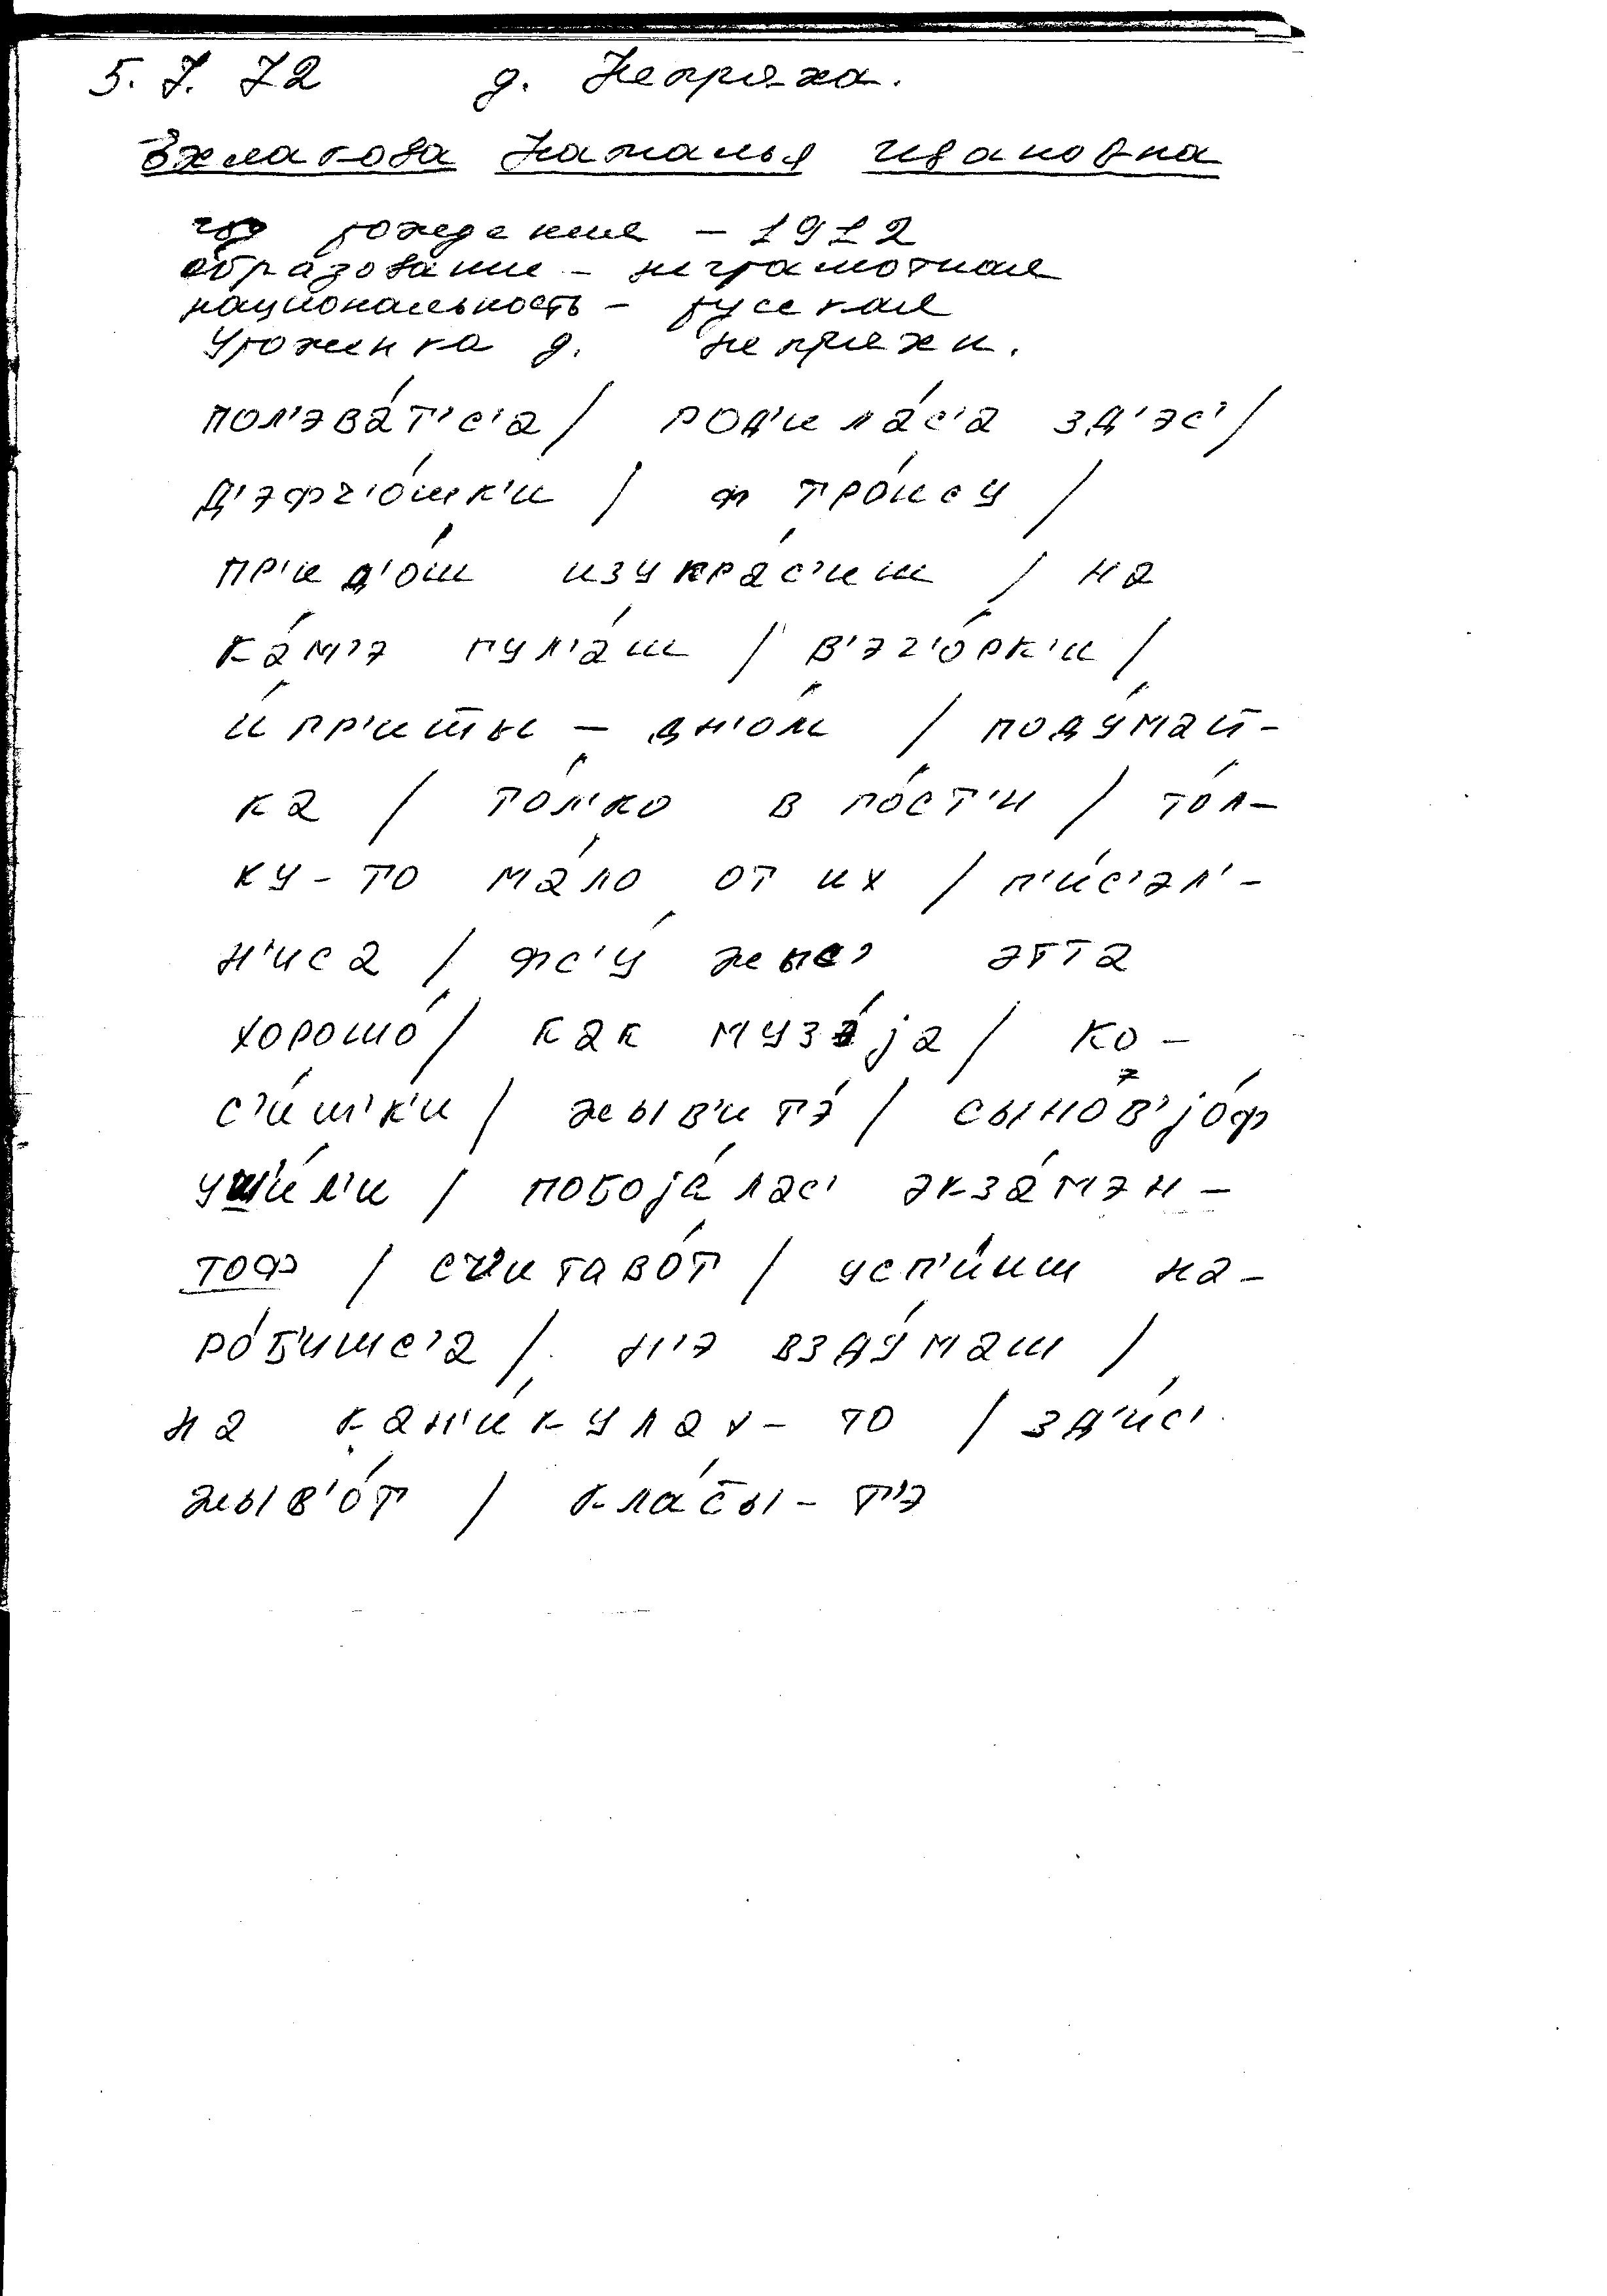 5. 7. 72 д. Непряха.
Эхлакова Наталья Ивановна
год рождения – 1912
образование – неграмотная
национальность – русская
Уроженка д. Непряхи.
пол'эва́т'с'а / род'ила́с'а зд'эс' /
д'эфч'о́шк'и / ф тро́ису /
пр'ид'о́ш изукра́с'иш / на
ка́м'э гул'а́ш / в'эч'о́рк'и /
и́гр'ишты – дн'о́м / поду́май-
ка / то́л'ко в го́ст'и / то́л-
ку-то ма́ло от их / п'и́с'эл'-
н'иса / фс'у́ жыс' этта
хорошо́ / как музэ́jа / ко-
с'и́шк'и / жыв'итэ́ / сынов'jо́ф
уши́л'и / побоjа́лас' экза́мэн-
тоф / считаво́т / усп'и́иш на-
ро́б'ишс'а / н'э взду́маш /
на кан'и́кулах-то / зд'ис'
жыв'о́т / кла́сы-т'э